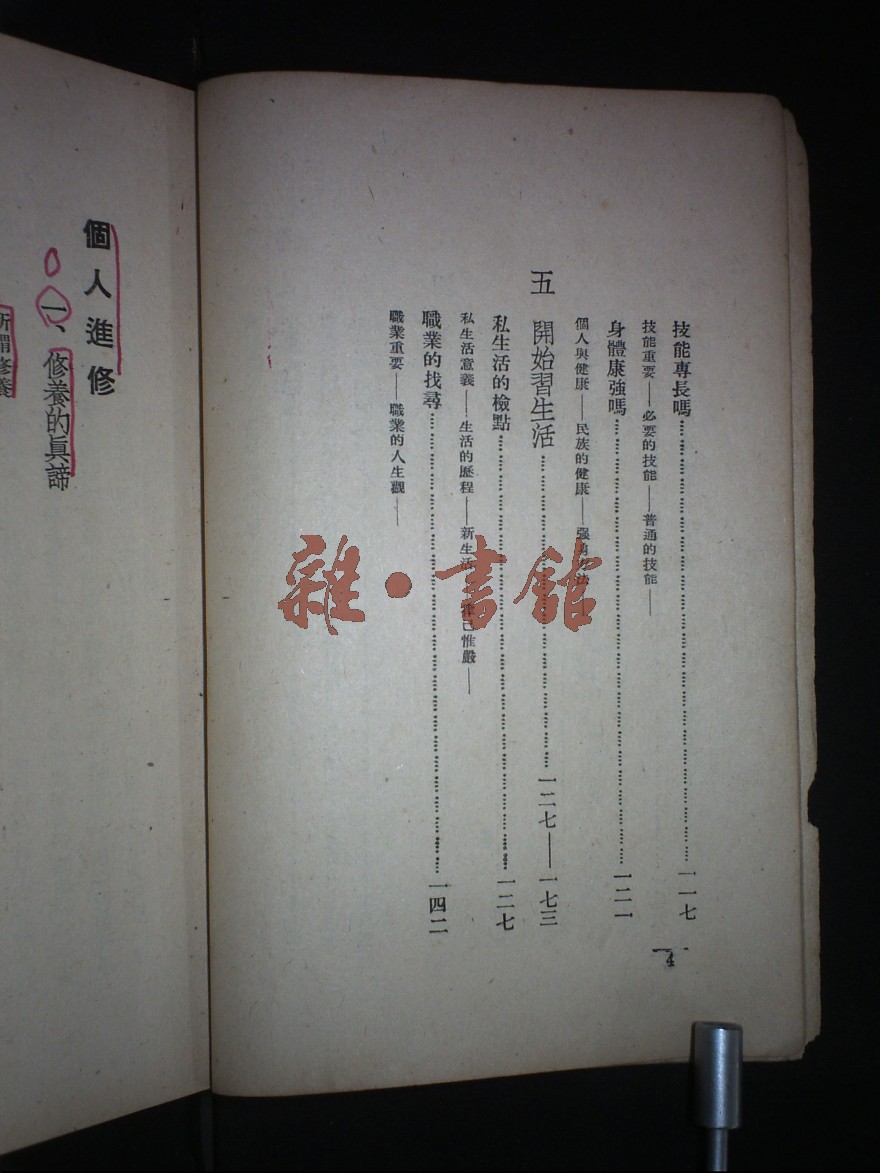 技能專長嗎……一一七
技能重要——必要的技能——普通的技能——
身體康強嗎……一二一
個人與健康——民族的健康——强
五 開始習生活……一二七——一七三
私生活的檢點……一二七
私生活意義——生活的歷程——新生活 律己惟嚴——
職業的找尋……一四二
職業重要——職業的人生觀——
個人進修
一、修養的眞諦
所謂修養
雜·書館